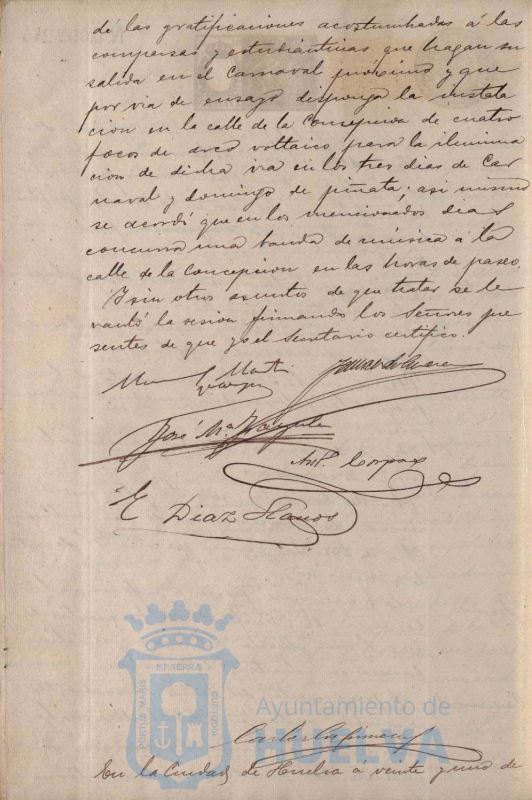 de las gratificaciones acostumbradas á las
comparsas y estudiantinas que hagan su
salida en el Carnaval próximo y que
por via de ensayo disponga la instala
ción en la calle de la Concepción de cuatro
focos de arco voltaico para la ilumina
ción de dicha via en los tres dias de Car
naval y domingo de piñata; asi mismo
se acordó que en los mencionados dias
concurra una banda de música á la
calle de la Concepcion en las horas de paseo.
Y sin otros asuntos de que tratar se le
vantó la sesion firmando los Señores pre
sentes de que yo el Secretario certifico.
José Mª
Ant. Corpas
E Diaz Llanos
ET TERRÆ
PORTUS MARIS
CUSTODIA
Ayuntamiento de
HUELVA
En la Ciudad de Huelva a veinte y uno de